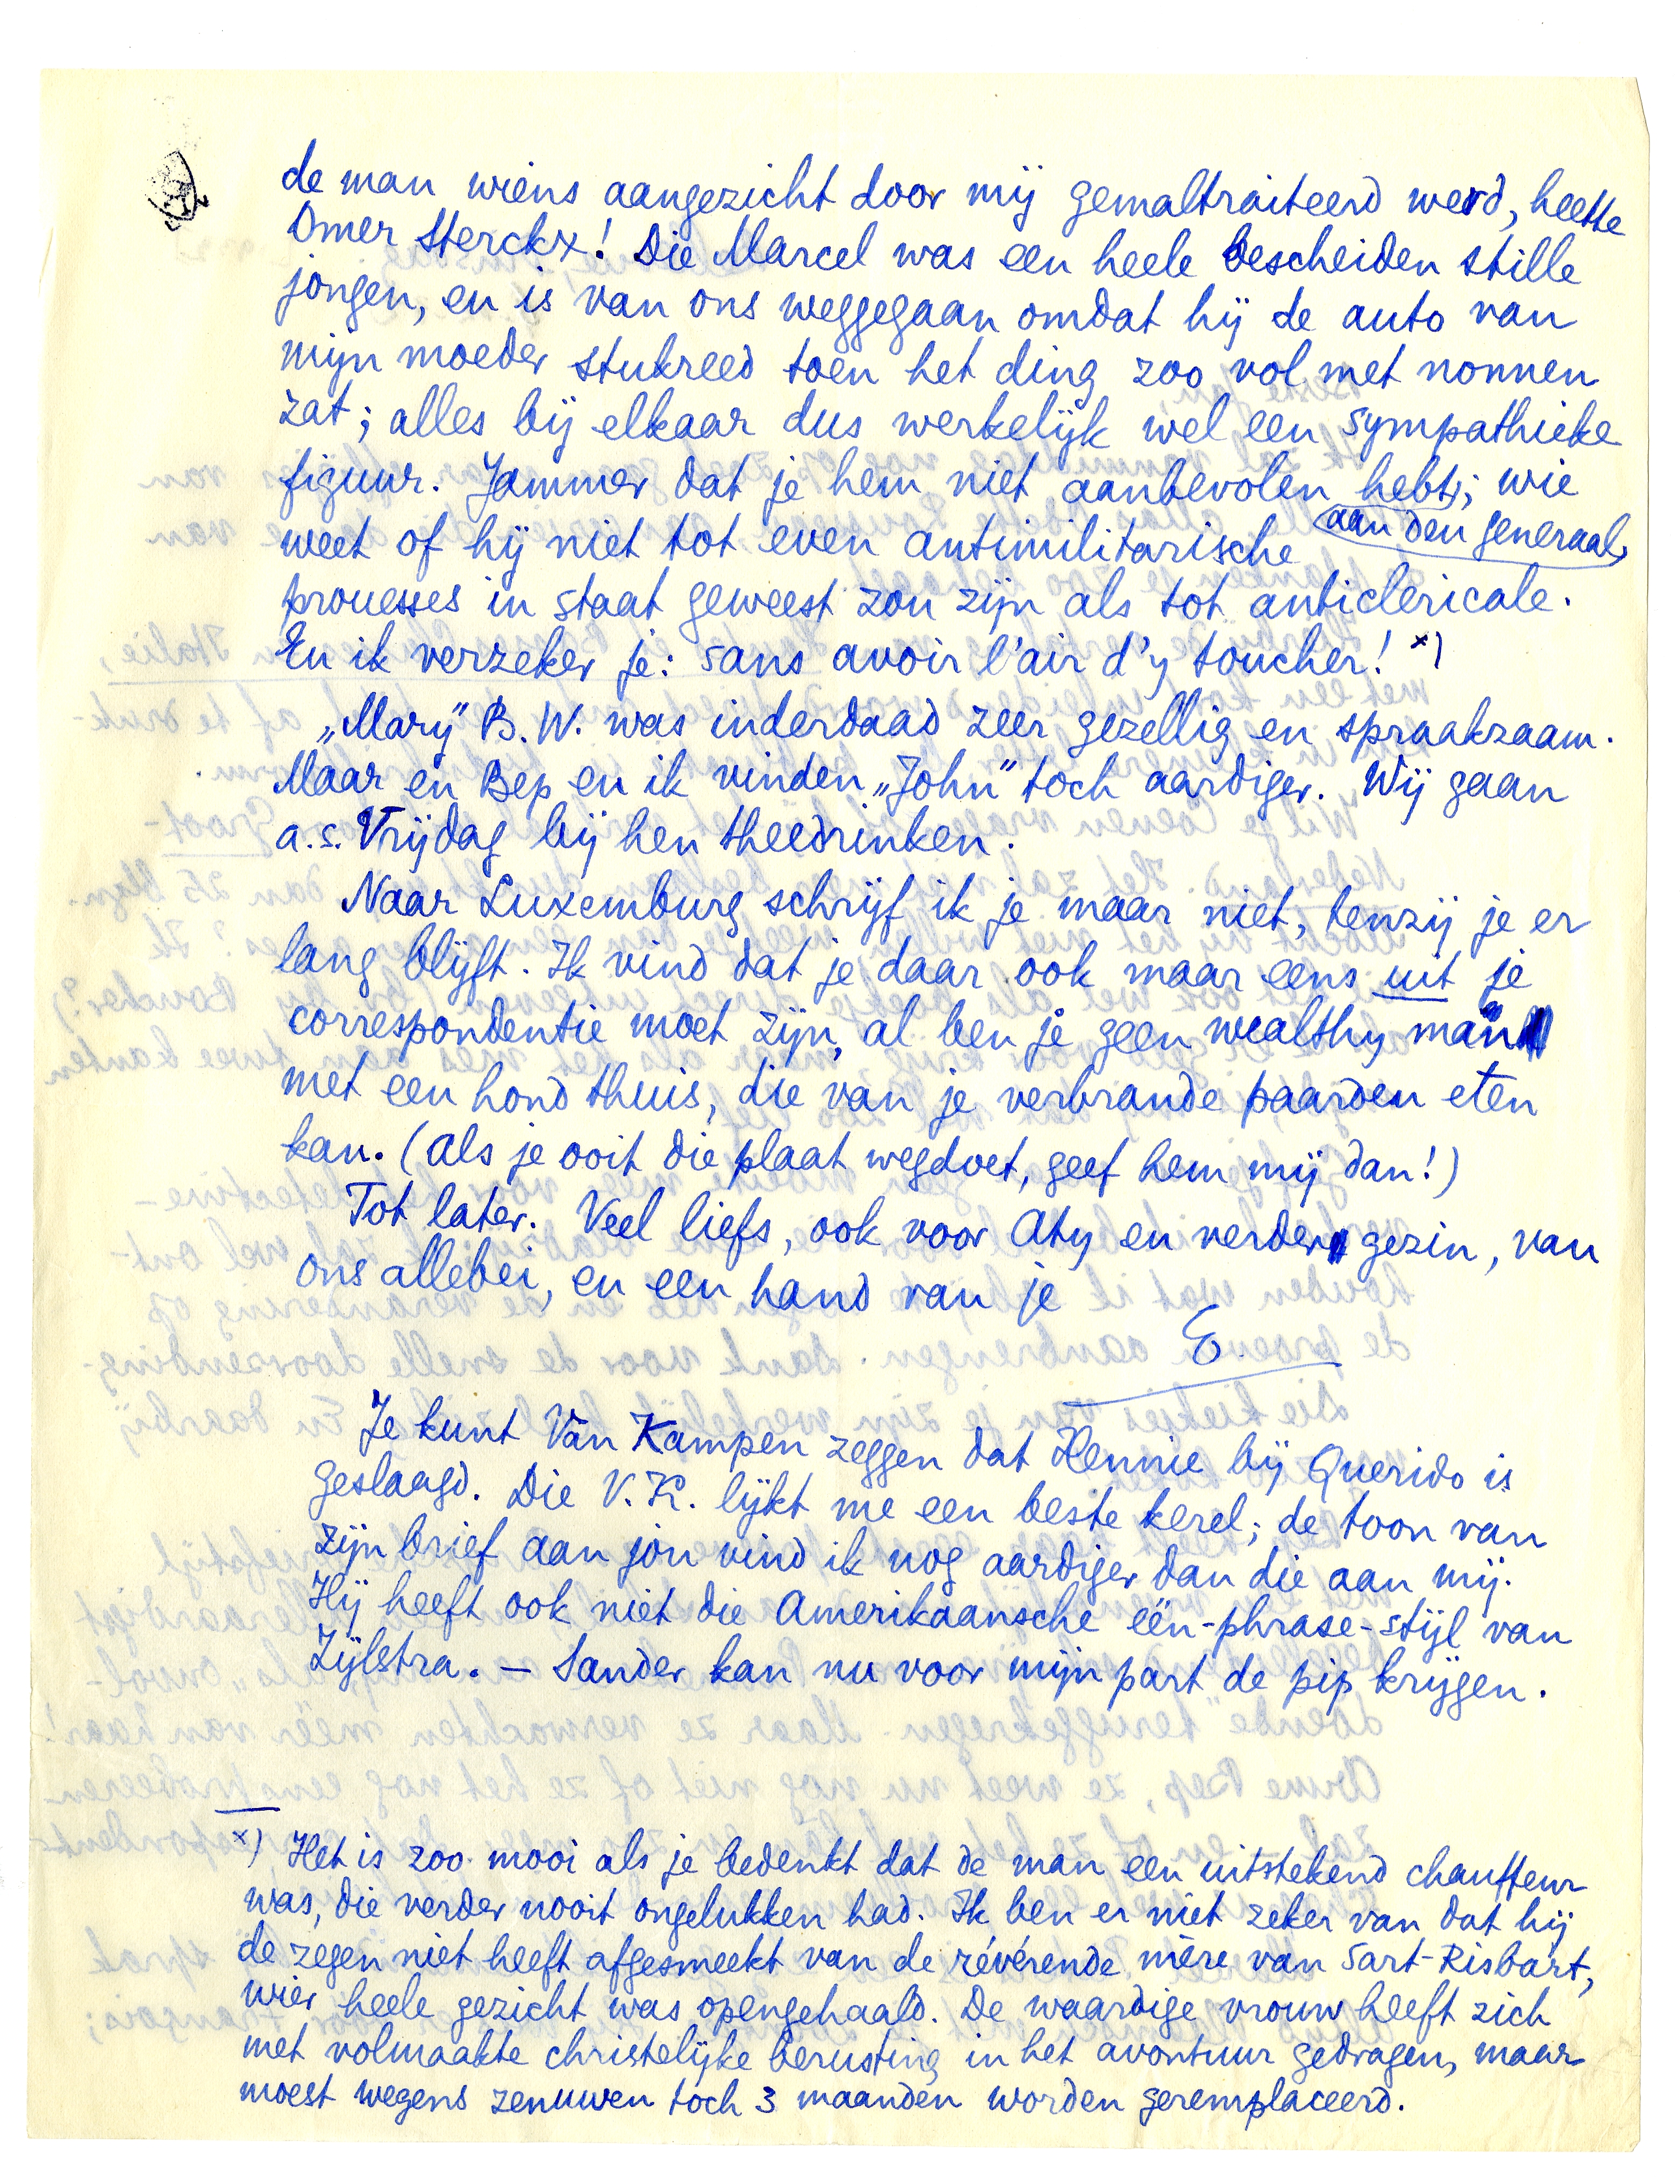 de man wiens aangezicht door mij gemaltraiteerd werd, heette
Omer Sterckx! Die Marcel was een heele bescheiden stille
jongen, en is van ons weggegaan omdat hij de auto van
mijn moeder stukreed toen het ding zoo vol met nonnen
zat; alles bij elkaar dus werkelijk wel een sympathieke
figuur. Jammer dat je hem niet aanbevolen hebt; wie
aan den generaal
weet of hij niet tot even antimilitarische
prouesses in staat geweest zou zijn als tot anticlericale.
En ik verzeker je: sans avoir l'air d'y toucher! x)
„Mary” B.W. was inderdaad zeer gezellig en spraakzaam.
Maar en Bep en ik vinden „John” toch aardiger. Wij gaan
a.s. Vrijdag bij hen theedrinken.
Naar Luxemburg schrijf ik je maar niet, tenzij je er
lang blijft. Ik vind dat je daar ook maar eens uit je
correspondentie moet zijn, al ben je geen wealthy man
met een hond thuis, die van je verbrande paarden eten
kan. (Als je ooit die plaat wegdoet, geef hem mij dan!)
Tot later. Veel liefs, ook voor Aty en verder gezin, van
ons allebei, en een hand van je
E.
Je kunt Van Kampen zeggen dat Hennie bij Querido is
geslaagd. Die V.K. lijkt me een beste kerel; de toon van
zijn brief aan jou vind ik nog aardiger dan die aan mij.
Hij heeft ook niet die Amerikaansche één-phrase-stijl van
Zijlstra. — Sander kan nu voor mijn part de pip krijgen.
x) Het is zoo mooi als je bedenkt dat de man een uitstekend chauffeur
was, die verder nooit ongelukken had. Ik ben er niet zeker van dat hij
de zegen niet heeft afgesmeekt van de révérende mère van Sart-Risbart,
wier heele gezicht was opengehaald. De waardige vrouw heeft zich
met volmaakte christelijke berusting in het avontuur gedragen, maar
moest wegens zenuwen toch 3 maanden worden geremplaceerd.